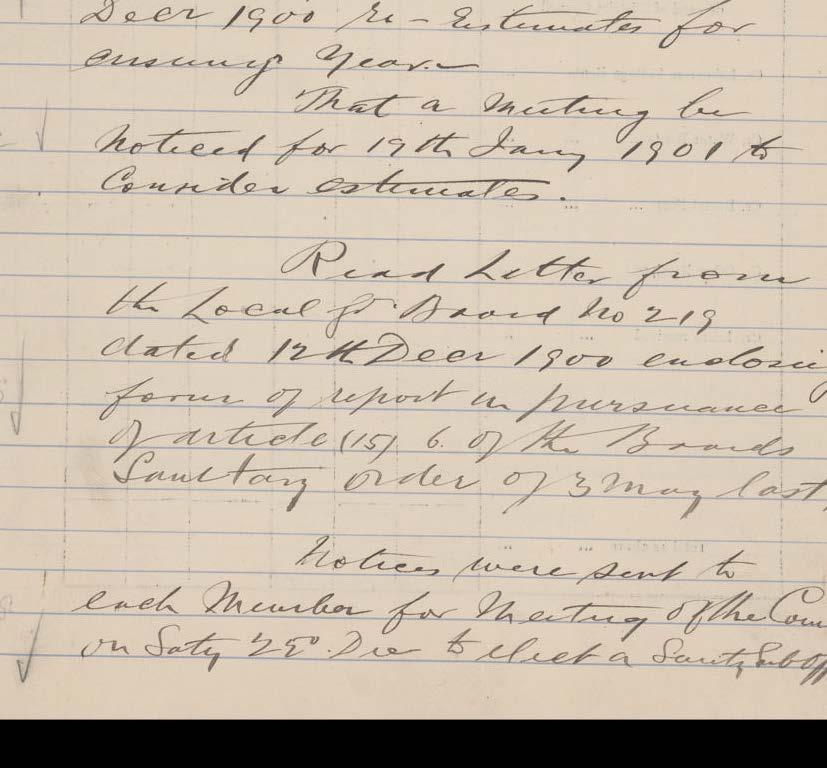 Decr 1900 re - Estimates for
ensuing Year.-
That a Meeting be
Noticed for 19th Jany 1901 to
Consider estimates.
Read Letter from
the Local Gt. Board No 219
dated 12th Decr 1900 enclosing
form of report in pursuance
of article (15) 6. of the Boards
Sanitary Order of 3 May last,
Notices were sent to
each Member for Meeting of the
on Saty Dec to elect a Santy Sub Off